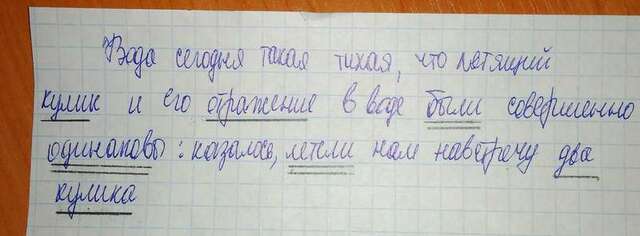 Вода сегодня такая тихая, что летящий
кулик и его отражение в воде были совершенно
одинаковы: казалось, летели нам навстречу два
кулика